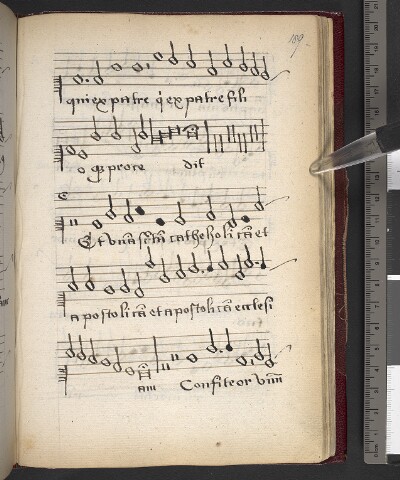 189
qui ex patre q̄ ex patre fili
o q̄ proce dit
Et unā sctām catheholicā et
apostolicā et apostolicā ecclesi
am Confiteor unū